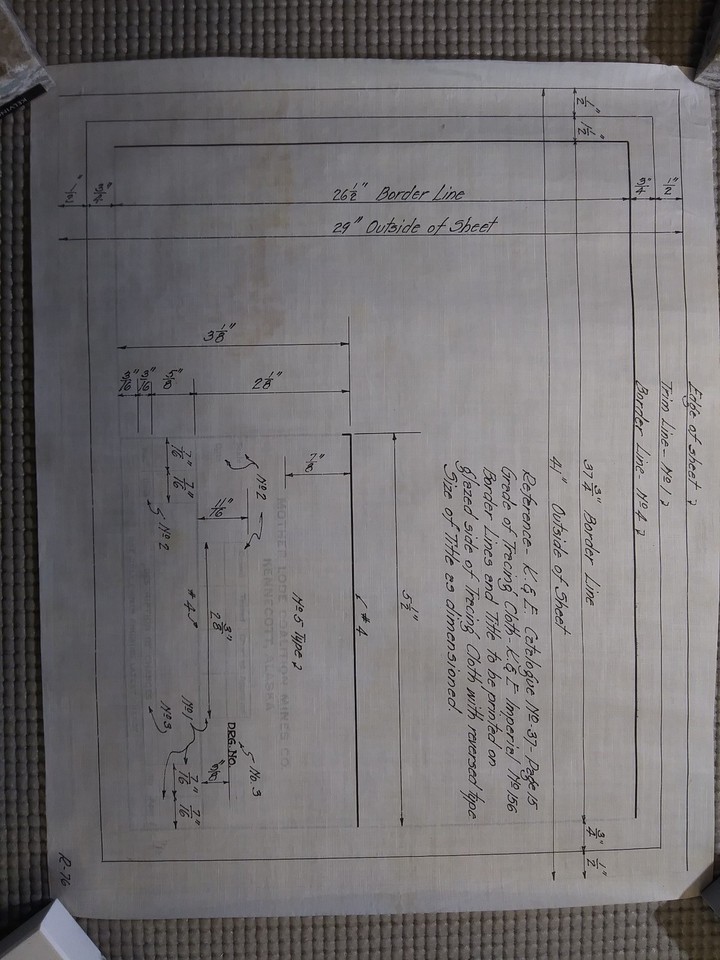 Edge of sheet
Trim Line - No 1
Border Line - No 4
1/2"
1 1/2"
37 3/4" Border Line
3/4"
1/2"
41" Outside of Sheet
1/2"
3/4"
26 1/2" Border Line
29" Outside of Sheet
3/4"
1/2"
Reference - K. & E. Catalogue No. 37 - Page 15
Grade of Tracing Cloth K & E Imperial No 156
Border Lines and Title to be printed on
glazed side of Tracing Cloth with reversed type
Size of Title as dimensioned
5 1/2"
# 4
3 1/8"
2 1/8"
5/8"
3/16"
3/16"
7/8"
No 5 Type
MOTHER LODE COALITION MINES CO.
KENNECOTT, ALASKA
No 2
11/16"
2 3/8"
DRG. NO.
No. 3
5/8"
# 4
No 1
7/16"
7/16"
No 2
No 3
7/16"
7/16"
R-76